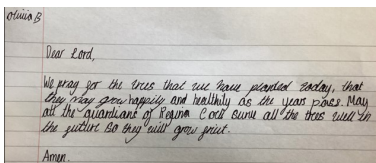 Olivia B
Dear Lord,
We pray for the trees that we have planted today, that
they may grow happily and healthily as the years pass. May
all the guardians of Regina Coeli serve all the trees well in
the future so they will grow fruit.
Amen.